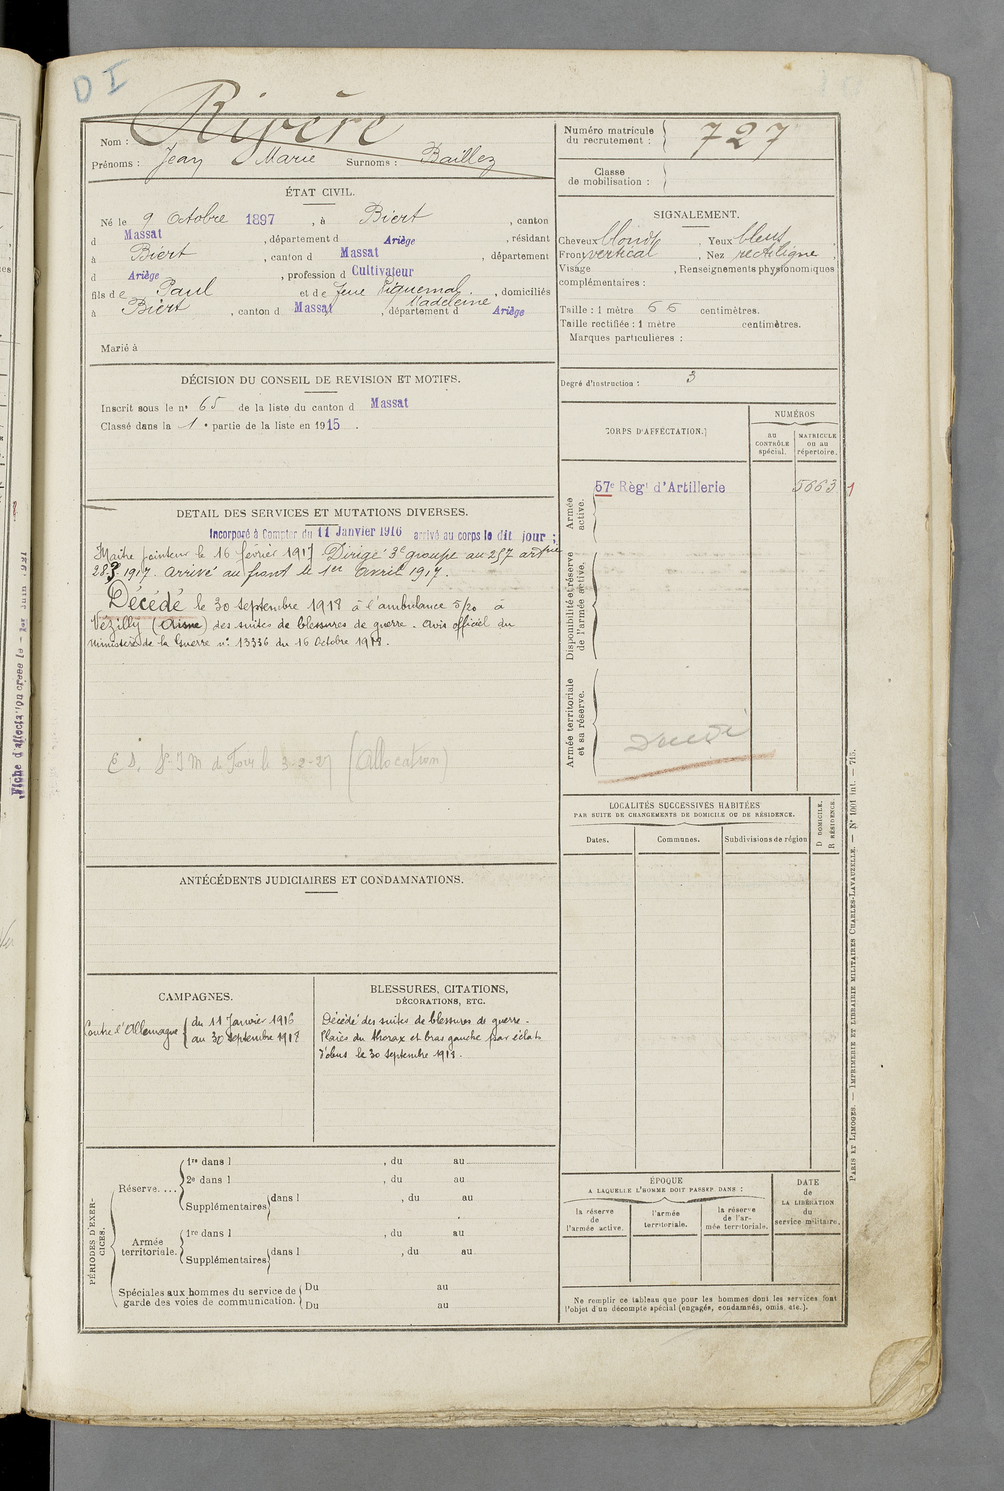 D I
Nom : Rivère
Prénoms : Jean Marie Surnoms : Baillez
Numéro matricule
du recrutement : 727
Classe
de mobilisation :
ÉTAT CIVIL.
Né le 9 Octobre 1897, à Biert, canton
d Massat, département d Ariège, résidant
à Biert, canton d Massat, département
d Ariège, profession d Cultivateur
fils de Paul et de feue Piquemal Madeleine, domiciliés
à Biert, canton d Massat, département d Ariège
Marié à
SIGNALEMENT.
Cheveux blonds, Yeux bleus,
Front vertical, Nez rectiligne,
Visage , Renseignements physionomiques
complémentaires :
Taille : 1 mètre 66 centimètres.
Taille rectifiée : 1 mètre centimètres.
Marques particulieres :
Degré d'instruction : 3
DÉCISION DU CONSEIL DE REVISION ET MOTIFS.
Inscrit sous le n° 65 de la liste du canton d Massat
Classé dans la 1e partie de la liste en 1915.
CORPS D'AFFECTATION.
NUMÉROS
au
CONTRÔLE
spécial.
MATRICULE
ou au
répertoire.
Armée
active.
57e Régt d'Artillerie 5663 1
Disponibilité et réserve
de l'armée active.
Armée territoriale
et sa réserve.
Décédé
DETAIL DES SERVICES ET MUTATIONS DIVERSES.
Incorporé à Compter du 11 Janvier 1916 arrivé au corps le dit jour ;
Maître pointeur le 16 février 1917 Dirigé 3e groupe au 257 artrie
28-3-1917. arrivé au front le 1er avril 1917.
Décédé le 30 septembre 1918 à l'ambulance 5/20 à
Vézilly (Aisne) des suites de blessures de guerre. avis officiel du
ministère de la Guerre n° 13336 du 16 Octobre 1918.
le 3-2-27 (Allocation)
ANTÉCÉDENTS JUDICIAIRES ET CONDAMNATIONS.
LOCALITÉS SUCCESSIVES HABITÉES
PAR SUITE DE CHANGEMENTS DE DOMICILE OU DE RÉSIDENCE.
Dates.
Communes.
Subdivisions de région
D DOMICILE.
R RÉSIDENCE.
CAMPAGNES.
Contre l'Allemagne
du 11 Janvier 1916
au 30 Septembre 1918
BLESSURES, CITATIONS,
DÉCORATIONS, ETC.
Décédé des suites de blessures de guerre.
Plaies du thorax et bras gauche par éclats
d'obus le 30 septembre 1918.
PÉRIODES D'EXER-
CICES.
Réserve....
1re dans l , du au
2e dans l , du au
Supplémentaires dans l , du au
Armée
territoriale.
1re dans l , du au
Supplémentaires dans l , du au
Spéciales aux hommes du service de
garde des voies de communication.
Du au
Du au
ÉPOQUE
A LAQUELLE L'HOMME DOIT PASSER DANS :
la réserve
de
l'armée active.
l'armée
territoriale.
la réserve
de l'ar-
mée territoriale.
DATE
de
LA LIBÉRATION
du
service militaire.
Ne remplir ce tableau que pour les hommes dont les services font
l'objet d'un décompte spécial (engagés, condamnés, omis, etc.).
PARIS ET LIMOGES. — IMPRIMERIE ET LIBRAIRIE MILITAIRES CHARLES-LAVAUZELLE. — N° 1001 int. — 715.